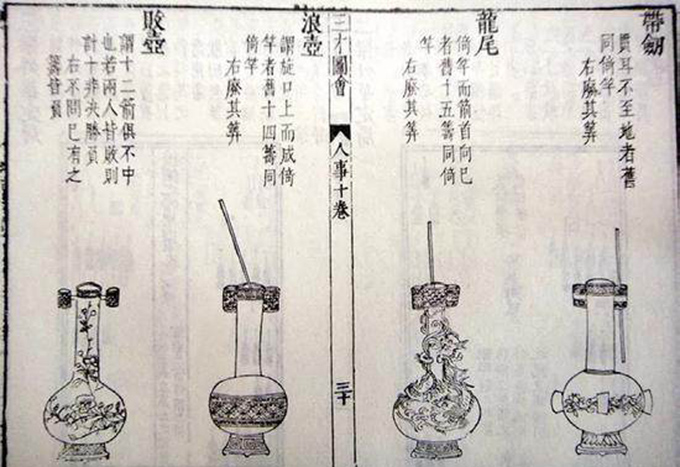 帶劍
貫耳不至地者舊
同倚竿
右廢其筭
龍尾
倚竿而箭首向已
者舊十五籌同倚
竿
右廢其筭
三才圖會
人事十卷
三十
浪壺
謂旋口上而成倚
竿者舊十四籌同
倚竿
右廢其筭
敗壺
謂十二箭俱不中
也若兩人皆敗則
計十非決勝負
右不問已有之
籌皆負